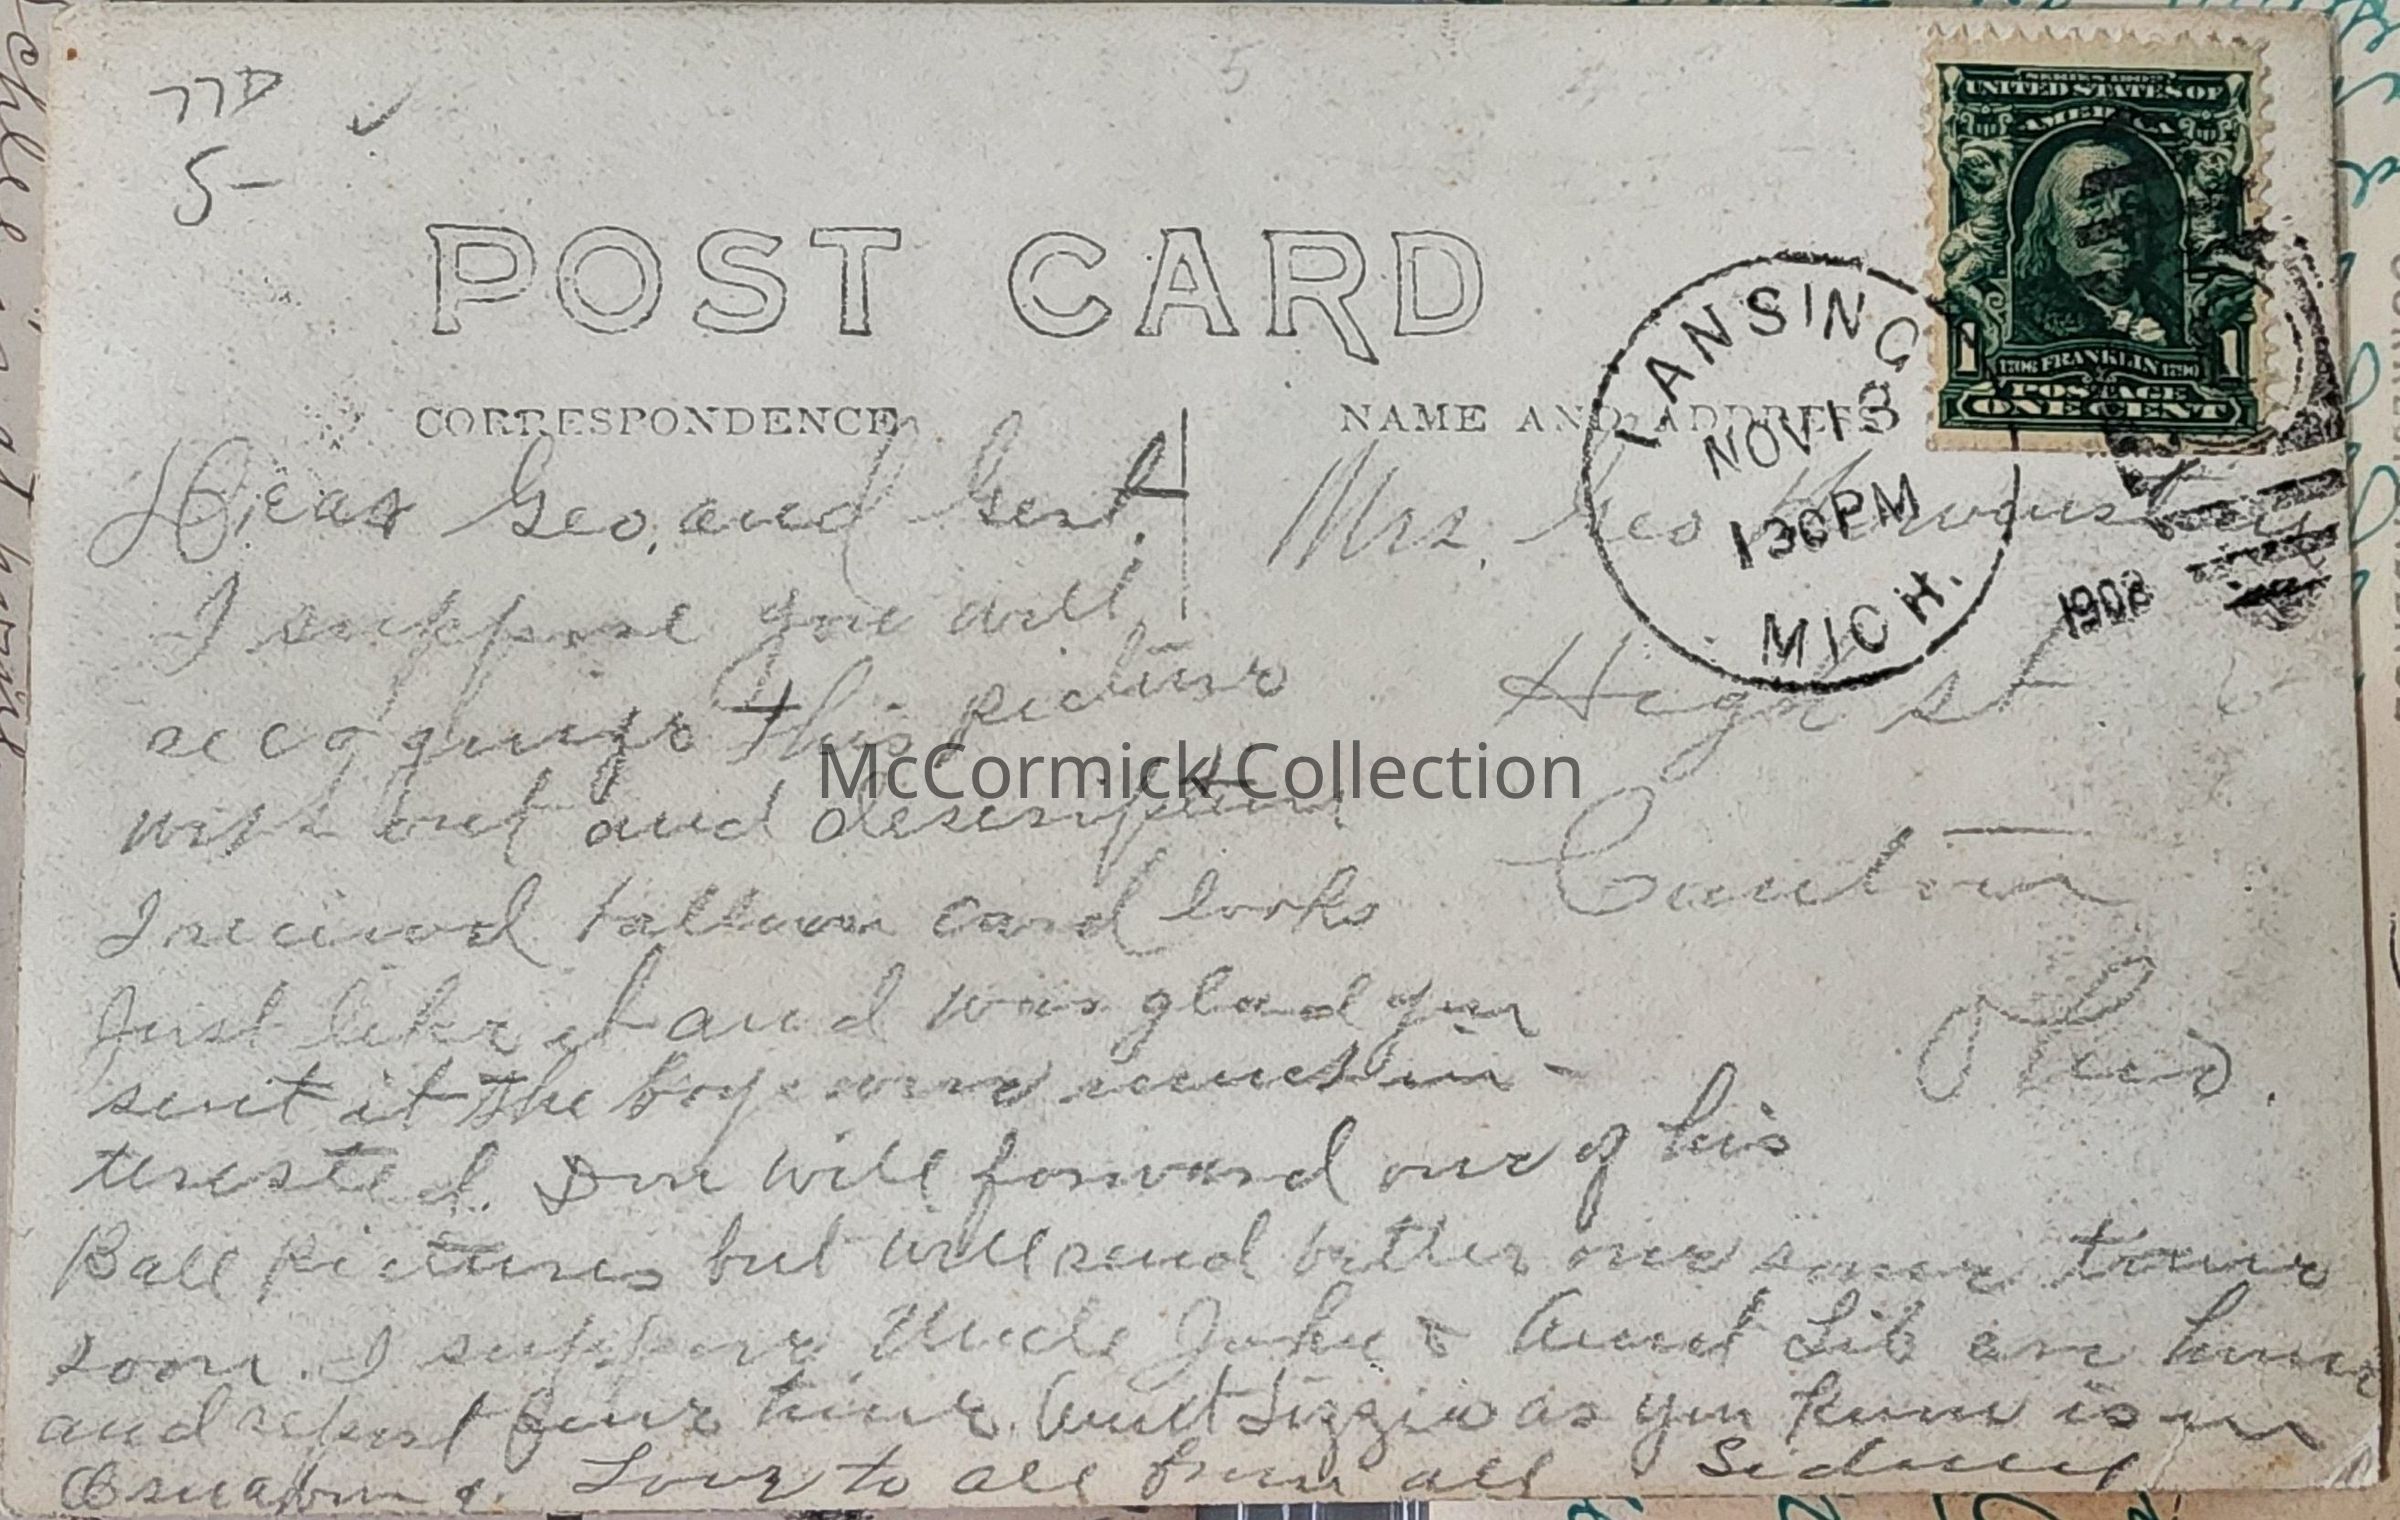 77D
5-
POST CARD
SERIES 1902
UNITED STATES OF
AMERICA
1 1706 FRANKLIN 1790 1
POSTAGE
ONE CENT
LANSING
NOV 13
130 PM
MICH.
1908
CORRESPONDENCE
NAME AND ADDRESS
Dear Geo, and Gert.
I suppose you will
recognize this picture
with out and description
I recieved tallown card looks
Just like it and was glad you
sent it The boys were much in-
terested. Don will forward one of his
Ball pictures but will send better one some time
soon. I suppose Uncle John & Aunt Lib are home
and report fine time. Aunt Lizzie as you know is in
Love to all from all Sidney
Mrs. Geo
High St
Canton
Ohio.
McCormick Collection